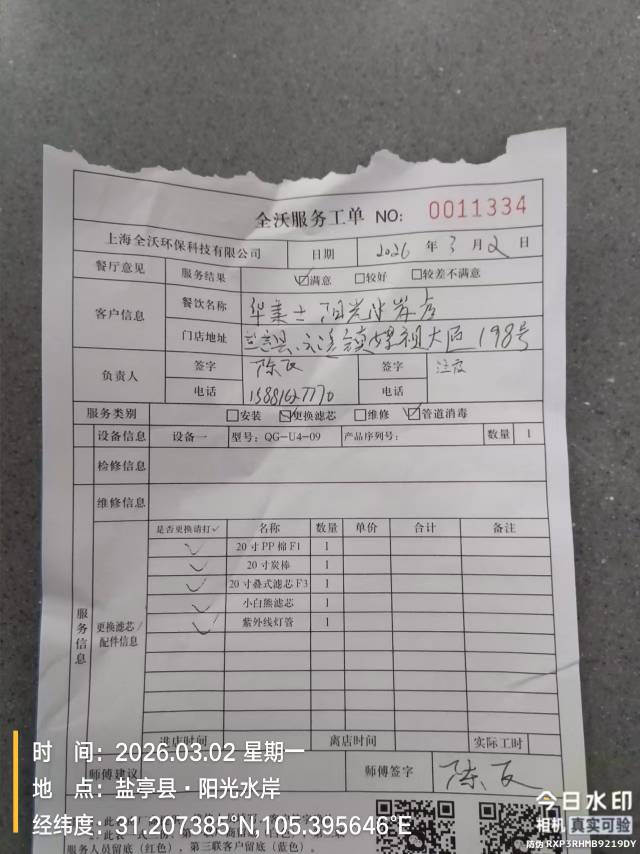 全沃服务工单 NO: 0011334
上海全沃环保科技有限公司 日期 2026 年 3 月 2 日
餐厅意见 服务结果 ☑满意 □较好 □较差不满意
客户信息 餐饮名称 华莱士 阳光水岸店
门店地址 云溪镇嫘祖大道 198号
负责人 签字 签字
电话 电话
服务类别 □安装 ☑更换滤芯 □维修 ☑管道消毒
设备信息 设备一 型号: QG-U4-09 产品序列号: 数量 1
检修信息
维修信息
服务信息 更换滤芯/配件信息
是否更换请打✓ 名称 数量 单价 合计 备注
✓ 20寸PP棉F1 1
✓ 20寸炭棒 1
✓ 20寸叠式滤芯F3 1
✓ 小白熊滤芯 1
✓ 紫外线灯管 1
进店时间 离店时间 实际工时
师傅建议 师傅签字
服务人员留底（红色），第三联客户留底（蓝色）。
时 间: 2026.03.02 星期一
地 点: 盐亭县·阳光水岸
经纬度: 31.207385°N,105.395646°E
今日水印
相机 真实可验
防伪 RXP3RHMB9219DY